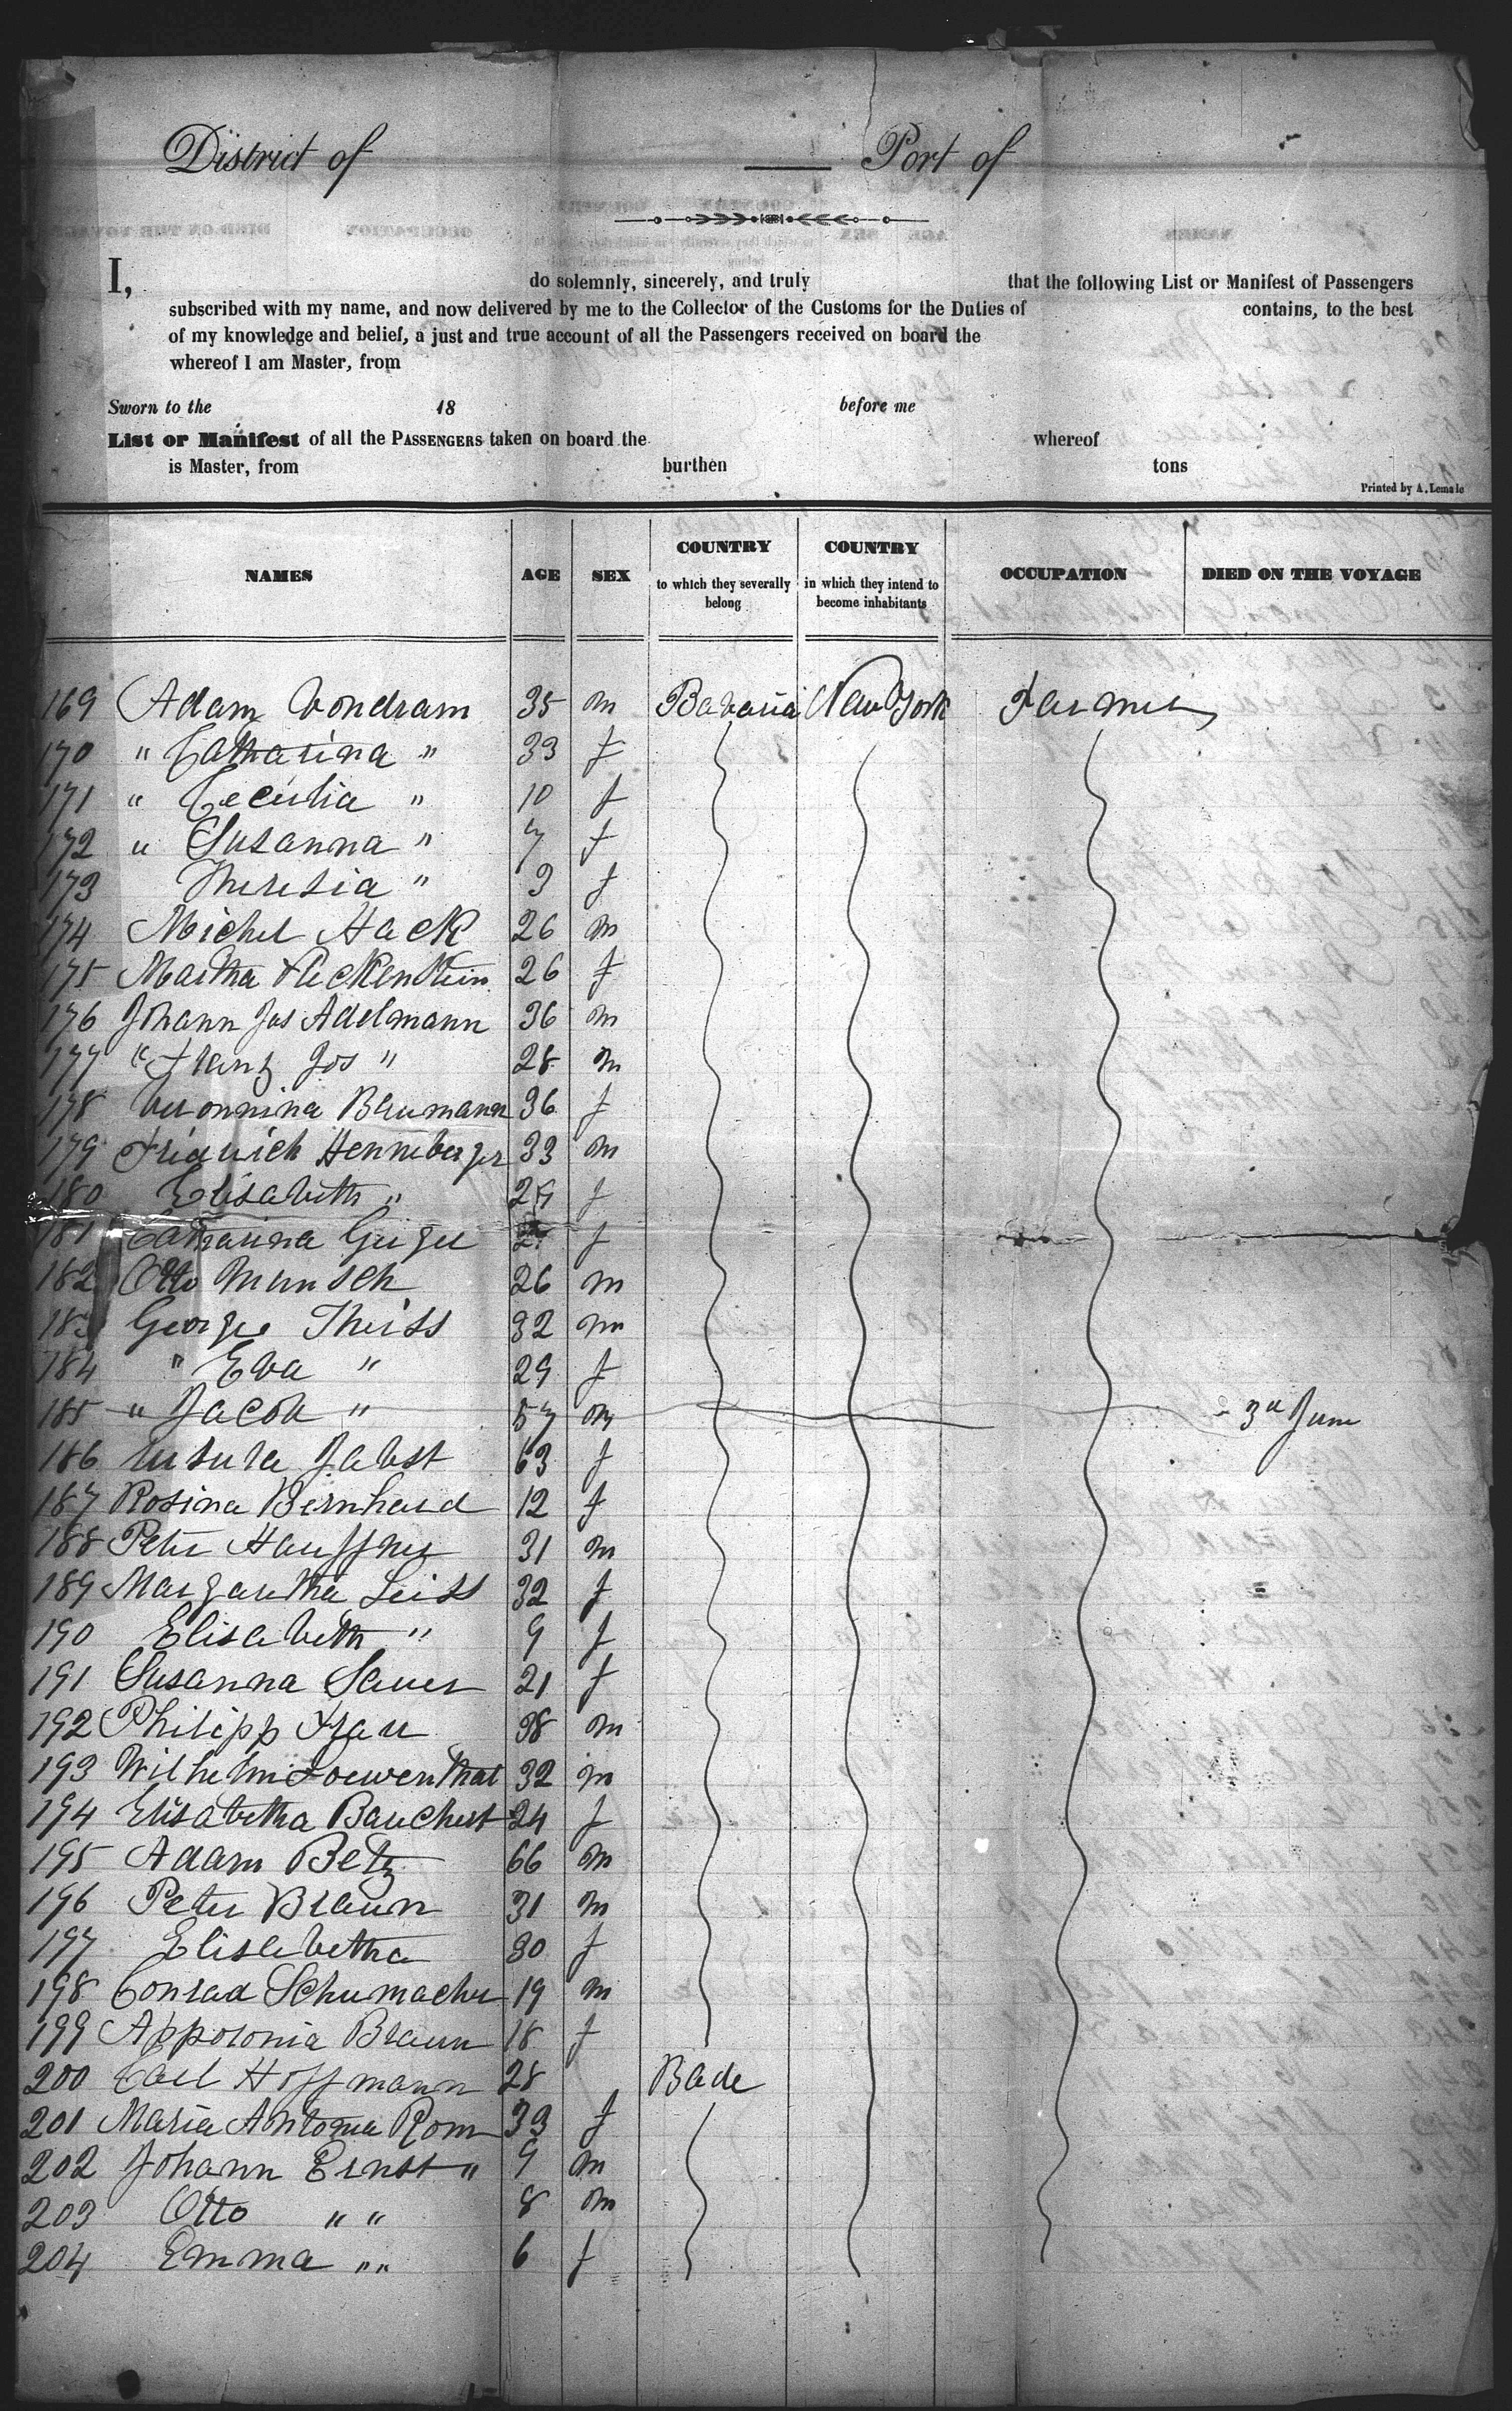 District of Port of
I, do solemnly, sincerely, and truly that the following List or Manifest of Passengers
subscribed with my name, and now delivered by me to the Collector of the Customs for the Duties of contains, to the best
of my knowledge and belief, a just and true account of all the Passengers received on board the
whereof I am Master, from
Sworn to the 18 before me
List or Manifest of all the PASSENGERS taken on board the whereof
is Master, from burthen tons
Printed by A. Lemale
NAMES AGE SEX COUNTRY to which they severally belong COUNTRY in which they intend to become inhabitants OCCUPATION DIED ON THE VOYAGE
169 Adam Vondram 35 m Bavaria New York Farmer
170 " Catharina " 33 f
171 " Cecilia " 10 f
172 " Susanna " 7 f
173 Theresia " 3 f
174 Michel Hack 26 m
175 Martha Fleckenstein 26 f
176 Johann Jos Adelmann 36 m
177 " Franz Jos " 28 m
178 Veronnina Baumann 36 f
179 Friedrich Henneberger 33 m
180 Elisabeth " f
181 Catharina Geiger f
182 Otto Munsch 26 m
183 George Theiss 32 m
184 " Eva " 29 f
185 " Jacob " 57 m 3d June
186 Ursula Jabst 63 f
187 Rosina Bernhard 12 f
188 Peter Hauffner 31 m
189 Margaretha Leiss 32 f
190 Elisabeth " 9 f
191 Susanna Sauer 21 f
192 Philipp Frau 38 m
193 Wilhelm Loewenthal 32 m
194 Elisabetha Bauchert 24 f
195 Adam Betz 66 m
196 Peter Braun 31 m
197 Elisabetha 30 f
198 Conrad Schumacher 19 m
199 Appolonia Braun 18 f
200 Carl Hoffmann 28 Bade
201 Maria Antonia Rom 33 f
202 Johann Ernst " 9 m
203 Otto " " 8 m
204 Emma " " 6 f